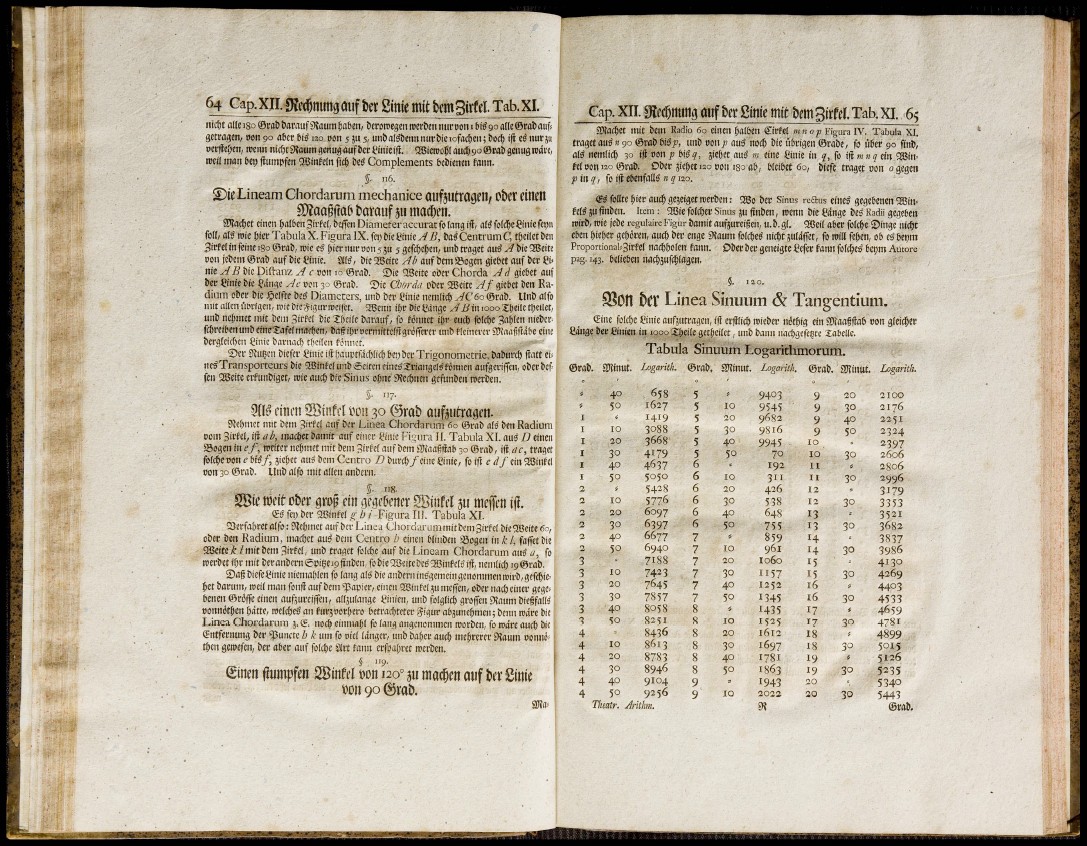 64 Cap. XII. Rechnung auf der Linie mit dem Zirkel. Tab. XI.
nicht alle 180 Grad darauf Raum haben, derowegen werden nur von 1 bis 90 alle Grad auf-
getragen, von 90 aber bis 120. von 5 zu 5, und alsdenn nur die 10fachen; doch ist es nur zu
verstehen, wenn nicht Raum genug auf der Linie ist. Wiewohl auch 90 Grad genug wäre,
weil man bey stumpfen Winkeln sich des Complements bedienen kann.
§. 116.
Die Lineam Chordarum mechanice aufzutragen, oder einen
Maaßstab darauf zu machen.
Machet einen halben Zirkel, dessen Diameter accurat so lang ist, als solche Linie seyn
soll, als wie hier Tabula X. Figura IX. sey die Linie A B, das Centrum C, theilet den
Zirkel in seine 180 Grad, wie es hier nur von 5 zu 5 geschehen, und traget aus A die Weite
von jedem Grad auf die Linie. Als, die Weite A b auf dem Bogen giebet auf der Li-
nie A B die Distanz A c von 10 Grad. Die Weite oder Chorda A d giebet auf
der Linie die Länge A e von 30 Grad. Die Chorda oder Weite A f giebet den Ra-
dium oder die Helfte des Diameters, und der Linie nemlich A C 60 Grad. Und also
mit allen übrigen, wie die Figur weiset. Wenn ihr die Länge A B in 1000 Theile theilet,
und nehmet mit dem Zirkel die Theile darauf, so könnet ihr euch solche Zahlen nieder-
schreiben und eine Tafel machen, daß ihr vermittelst grösserer und kleinerer Maaßstäbe eine
dergleichen Linie darnach theilen könnet.
Der Nutzen dieser Linie ist hauptsächlich bey der Trigonometrie, dadurch statt ei-
nes Transporteurs die Winkel und Seiten eines Triangels können aufgerissen, oder des-
sen Weite erkundiget, wie auch die Sinus ohne Rechnen gefunden werden.
§. 117.
Als einen Winkel von 30 Grad aufzutragen.
Nehmet mit dem Zirkel auf der Linea Chordarum 60 Grad als den Radium
vom Zirkel, ist a b, machet damit auf einer Linie Figura II. Tabula XI. aus D einen
Bogen in e f, weiter nehmet mit dem Zirkel auf dem Maaßstab 30 Grad, ist a c, traget
solche von e bis f, ziehet aus dem Centro D durch f eine Linie, so ist e d f ein Winkel
von 30 Grad. Und also mit allen andern.
§. 118.
Wie weit oder groß ein gegebener Winkel zu messen ist.
Es sey der Winkel g h i Figura III. Tabula XI.
Verfahret also: Nehmet auf der Linea Chordarum mit dem Zirkel die Weite 60,
oder den Radium, machet aus dem Centro h einen blinden Bogen in k l, fasset die
Weite k l mit dem Zirkel, und traget solche auf die Lineam Chordarum aus a, so
werdet ihr mit der andern Spitze 19 finden, so die Weite des Winkels ist, nemlich 19 Grad.
Daß diese Linie niemahlen so lang als die andern insgemein genommen wird, geschie-
het darum, weil man sonst auf dem Papier, einen Winkel zu messen, oder nach einer gege-
benen Grösse einen aufzureissen, allzulange Linien, und folglich grossen Raum dießfalls
vonnöthen hätte, welches an kurz vorhero betrachteter Figur abzunehmen; denn wäre die
Linea Chordarum z. E. noch einmahl so lang angenommen worden, so wäre auch die
Entfernung der Puncte h k um so viel länger, und daher auch mehrerer Raum vonnö-
then gewesen, der aber auf solche Art kann ersparet werden.
§ 119.
Einen stumpfen Winkel von 120° zu machen auf der Linie
von 90 Grad.
Ma-
Cap. XII. Rechnung auf der Linie mit dem Zirkel. Tab. XI. 65
Machet mit dem Radio 60 einen halben Cirkel m n o p Figura IV. Tabula XI.
traget aus n 90 Grad bis p, und von p aus noch die übrigen Grade, so über 90 sind,
als nemlich 30 ist von p bis q, ziehet aus m eine Linie in q, so ist m n q ein Win-
kel von 120 Grad. Oder ziehet 120 von 180 ab, bleibet 60, diese traget von o gegen
p in q, so ist ebenfalls n q 120.
Es sollte hier auch gezeiget werden: Wo der Sinus rectus eines gegebenen Win-
kels zu finden. Item: Wie solcher Sinus zu finden, wenn die Länge des Radii gegeben
wird, wie jede regulaire Figur damit aufzureißen, u. d. gl. Weil aber solche Dinge nicht
eben hieher gehören, auch der enge Raum solches nicht zulässet, so will sehen, ob es beym
Proportional-Zirkel nachholen kann. Oder der geneigte Leser kann solches beym Autore
pag. 143. belieben nachzuschlagen.
§. 120.
Von der Linea Sinuum & Tangentium.
Eine solche Linie aufzutragen, ist erstlich wieder nöthig ein Maaßstab von gleicher
Länge der Linien in 1000 Theile getheilet, und dann nachgesetzte Tabelle.
Tabula Sinuum Logarithmorum.
Grad. Minut. Logarith. Grad. Minut. Logarith. Grad. Minut. Logarith.
° ′ ° ′ ° ′
= 40 658 5 = 9403 9 20 2100
= 50 1627 5 10 9545 9 30 2176
1 = 1419 5 20 9682 9 40 2251
1 10 3088 5 30 9816 9 50 2324
1 20 3668 5 40 9945 10 = 2397
1 30 4179 5 50 70 10 30 2606
1 40 4637 6 = 192 11 = 2806
1 50 5050 6 10 311 11 30 2996
2 = 5428 6 20 426 12 = 3179
2 10 5776 6 30 538 12 30 3353
2 20 6097 6 40 648 13 = 3521
2 30 6397 6 50 755 13 30 3682
2 40 6677 7 = 859 14 = 3837
2 50 6940 7 10 961 14 30 3986
3 = 7188 7 20 1060 15 = 4130
3 10 7423 7 30 1157 15 30 4269
3 20 7645 7 40 1252 16 = 4403
3 30 7857 7 50 1345 16 30 4533
3 40 8058 8 = 1435 17 = 4659
3 50 8251 8 10 1525 17 30 4781
4 = 8436 8 20 1612 18 = 4899
4 10 8613 8 30 1697 18 30 5015
4 20 8783 8 40 1781 19 = 5126
4 30 8946 8 50 1863 19 30 5235
4 40 9104 9 = 1943 20 = 5340
4 50 9256 9 10 2022 20 30 5443
Theatr. Arithm. R Grad.